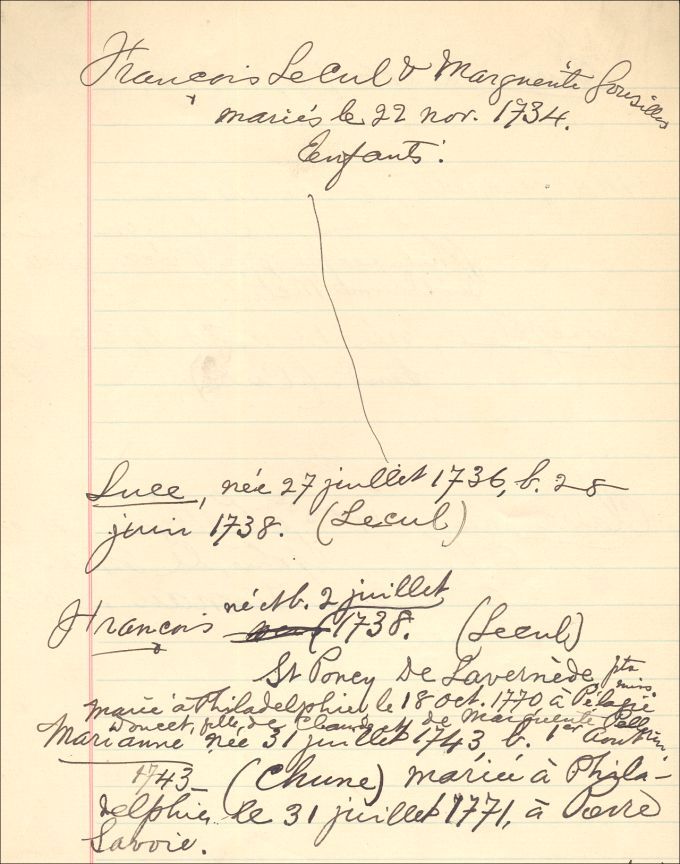 François Lecul & Marguerite Gousilles
mariés le 22 nov. 1734.
Enfants:
Luce, née 27 juillet 1736, b. 28
juin 1738. (Lecul)
François né et b. 2 juillet
1738. (Lecul)
St Poncy De Lavernède ptr
miss.
marié à Philadelphie le 18 oct. 1770 à Pélagie
Doucet, fille de Claude & de Marguerite
Marianne née 31 juillet 1743, b. 1er Août
1743 (Chune) mariée à Phila-
delphie le 31 juillet 1771, à Pierre
Savoie.